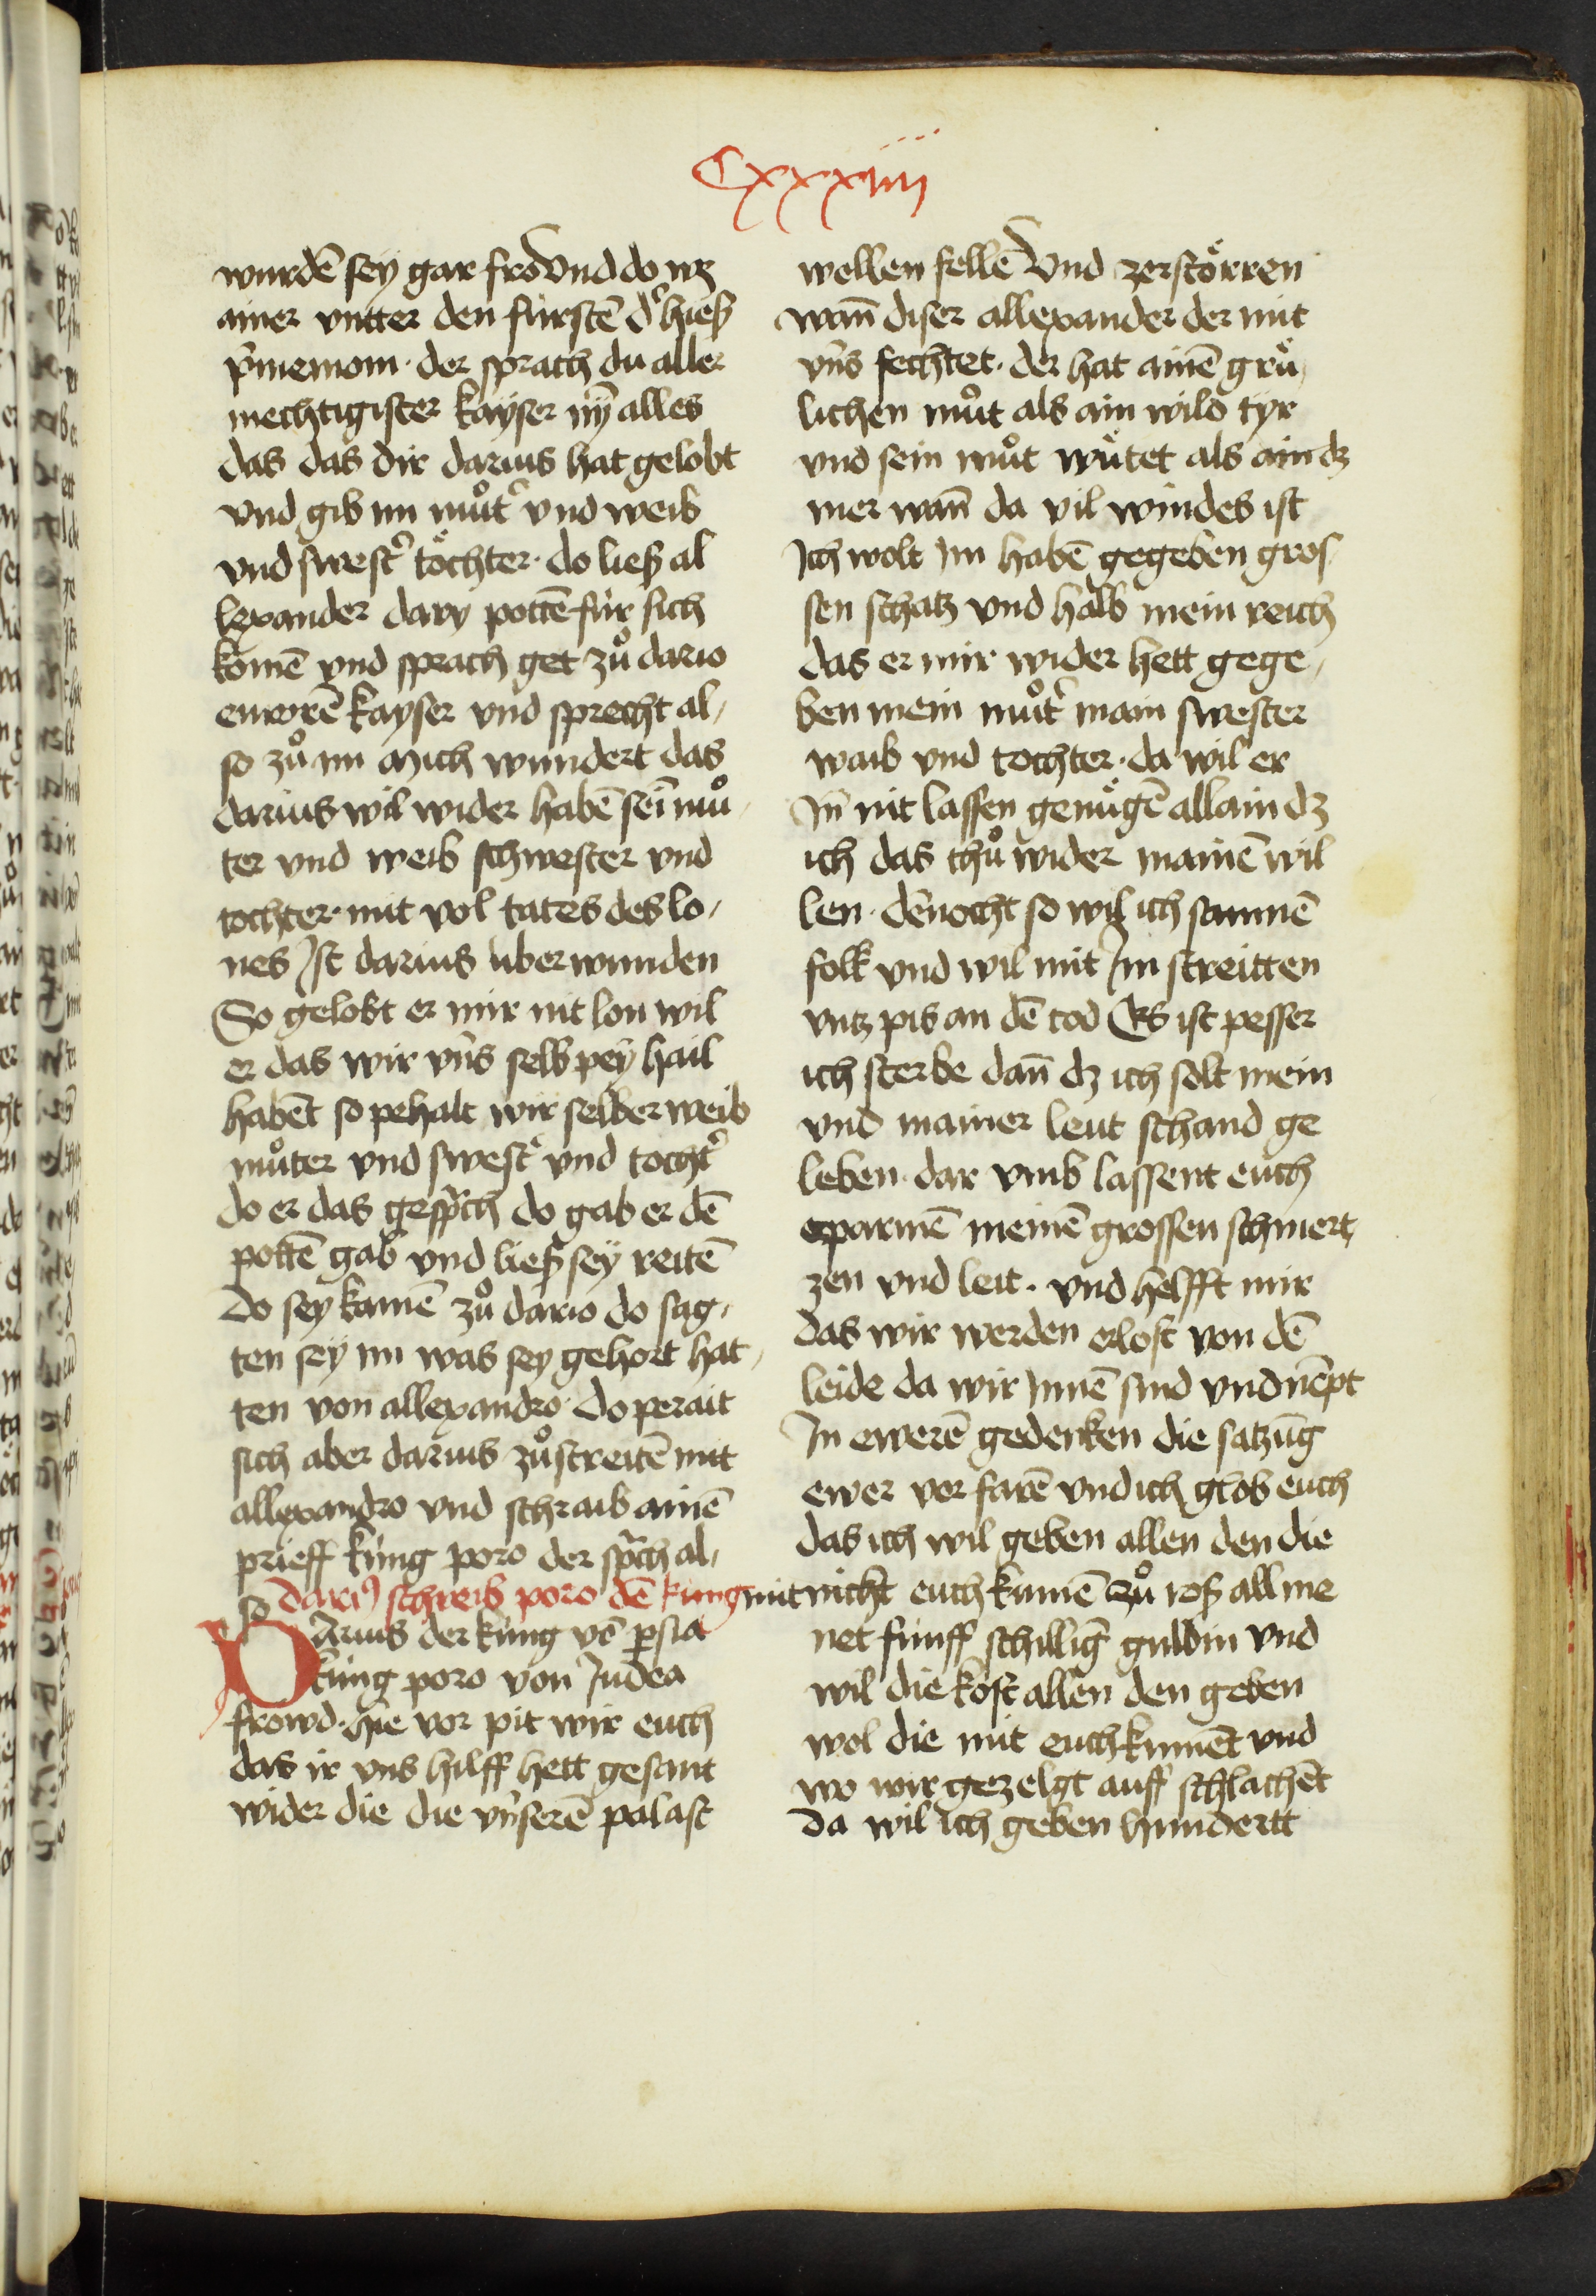 Cxxxiiii
wurdē sey gar fro Vnd do wz
ainer vntter den fürstē dˀ hieß
der sprach du aller
mechtigister kayser nÿ alles
das das dir darius hat gelobt
vnd gib im můtˀ vnd weib
vnd swestˀ töchter · do ließ al
lexander dary pottē für sich
komē vnd sprach get zů dario
ewrē kayser vnd sprecht al,
so zů im mich wundert das
darius wil wider habē sei mů,
ter vnd weib schwester vnd
tochter · mit vol tates des lo,
nes Ist darius überwunden
So gelobt er mir nit lon wil
er das wir vns selb pey hail
habēt so pehalt wir selber weib
můter vnd swestˀ vnd tochtˀ
do er das gesprch do gab er dē
pottē gab vnd ließ sey reitē
Do sey kamē zů dario do sag,
ten sey im was sey gehort hat,
ten von allexandro · do perait
sich aber darius zů streitē mit
allexandro vnd schraib ainē
prieff küng poro der sprch al,
so Dariꝰ schreib poro dē küng
DArius der küng vō persia
küng poro von Judea
frowd · hie vor pit wir euch
das ir vns hilff hett gesant
wider die die vnserē palast
wellen fellē Vnd zerstörren
wan̄ diser allexander der mit
vns fechtet · der hat ainē grü,
lichen můt als ain wild tyr
vnd sein můt wütet als ain dz
mer wan̄ da vil windes ist
Ich wolt Im habē gegeben gros
sen schatz vnd halb mein reich
das er mir wider hett gege,
ben mein můtˀ main swester
waib vnd tochter · da wil er
In̄ nit lassen genügē allain dz
ich das thů wider mainē wil
len · dēnocht so wil ich samnē
folk vnd wil mit Im streitten
vntz pis an dē tod Es ist pesser
ich sterbe dan̄ dz ich solt mein
vnd mainer leut schand ge
leben · dar vmb lassent euch
erparmē meinē grossen schmert,
zen vnd leit · vnd helfft mir
das wir werden erlost von dē
leide da wir Innē sind vnd nēpt
In ewerē gedenken die satzūg
ewer vor farē vnd ich glob euch
das ich wil geben allen den die
mit nicht euch kumē zů roß all me
net fünff schilling guldin vnd
wil die kost allen den geben
wol die mit euch kumēt vnd
wo wir gezelgt auff schlachēt
da wil ich geben hundertt